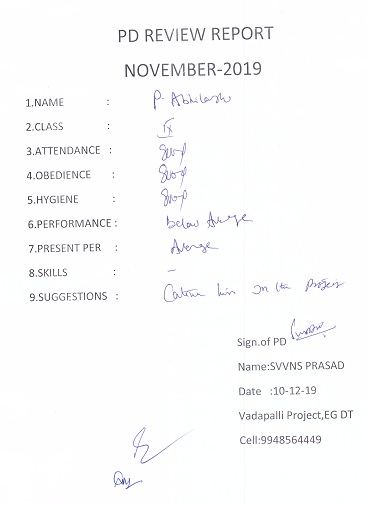 PD REVIEW REPORT
NOVEMBER-2019
1.NAME : P. Abhilash
2.CLASS : IX
3.ATTENDANCE : Good
4.OBEDIENCE : Good
5.HYGIENE : Good
6.PERFORMANCE : Below Average
7.PRESENT PER : Average
8.SKILLS : –
9.SUGGESTIONS : him in the
Sign.of PD
Name:SVVNS PRASAD
Date :10-12-19
Vadapalli Project,EG DT
Cell:9948564449